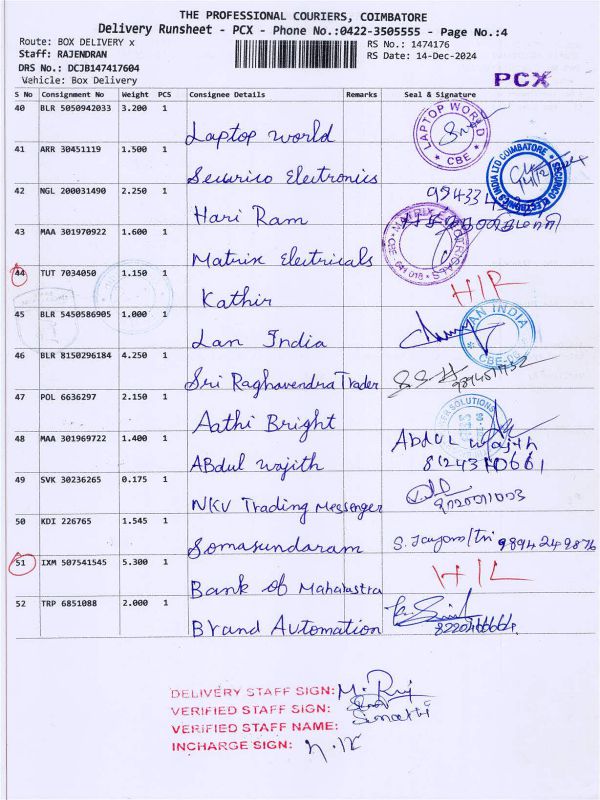 THE PROFESSIONAL COURIERS, COIMBATORE
Delivery Runsheet - PCX - Phone No.:0422-3505555 - Page No.:4
Route: BOX DELIVERY x
RS No.: 1474176
Staff: RAJENDRAN
RS Date: 14-Dec-2024
DRS No.: DCJB147417604
Vehicle: Box Delivery
PCX
S No Consignment No Weight PCS Consignee Details Remarks Seal & Signature
40 BLR 5050942033 3.200 1 Laptop world
LAPTOP WORLD CBE
41 ARR 30451119 1.500 1 Securico Electronics
SECURICO ELECTRONICS INDIA LTD COIMBATORE
42 NGL 200031490 2.250 1 Hari Ram
43 MAA 301970922 1.600 1 Matrix Electricals
MATRIX ELECTRICALS CBE 641 018
44 TUT 7034050 1.150 1 Kathir
45 BLR 5450586905 1.000 1 Lan India
LAN INDIA
46 BLR 8150296184 4.250 1 Sri Raghavendra Trader
47 POL 6636297 2.150 1 Aathi Bright
SOLUTIONS
48 MAA 301969722 1.400 1 ABdul wajith Abdul wajith
8124310661
49 SVK 30236265 0.175 1 NKV Trading Messenger
50 KDI 226765 1.545 1 Somasundaram 9894249876
51 IXM 507541545 5.300 1 Bank of Mahalastra
52 TRP 6851088 2.000 1 Brand Automation
DELIVERY STAFF SIGN:
VERIFIED STAFF SIGN:
VERIFIED STAFF NAME:
INCHARGE SIGN: